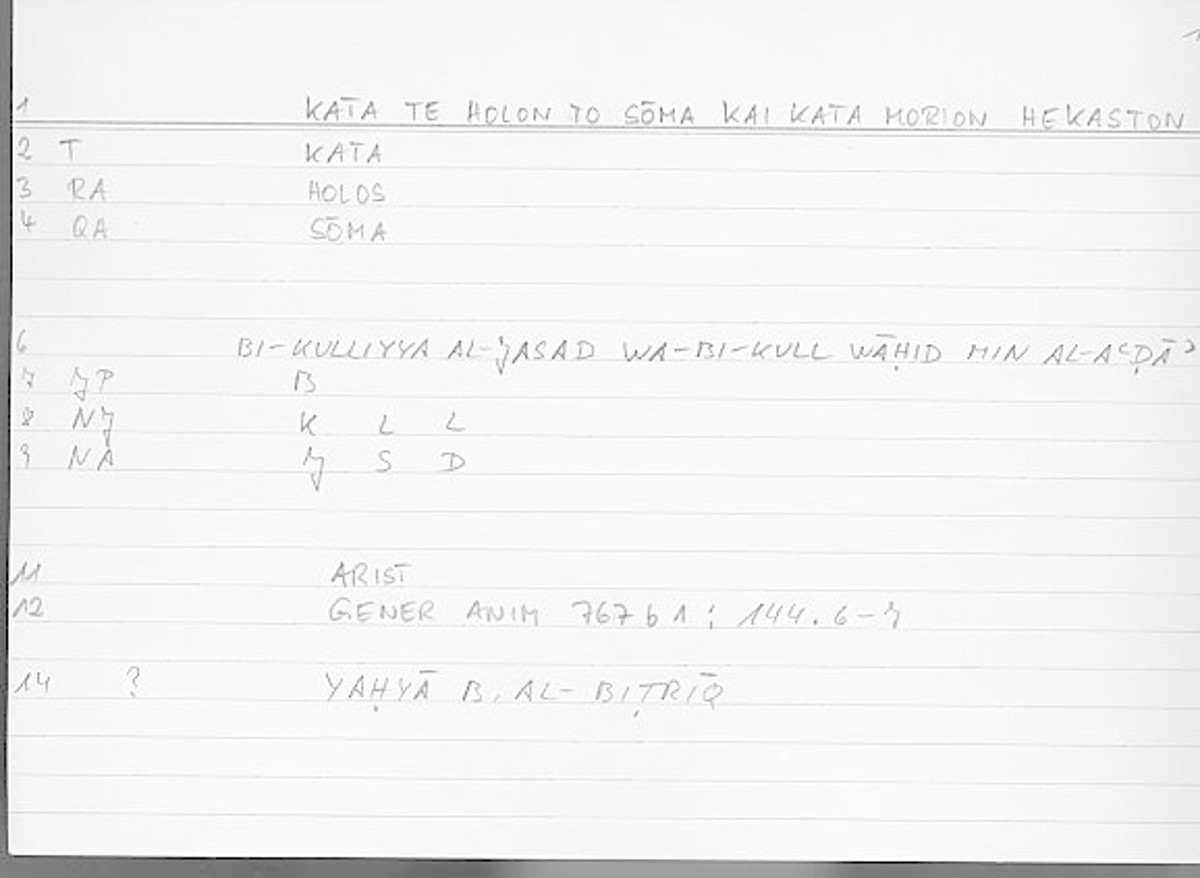 1
1 KATA TE HOLON TO SŌMA KAI KATA MORION HEKASTON
2 T KATA
3 RA HOLOS
4 QA SŌMA
6 BI-KULLIYYA AL-JASAD WA-BI-KULL WĀḤID MIN AL-AʿḌĀʾ
7 JP B
8 NJ K L L
9 NA J S D
11 ARIST
12 GENER ANIM 767 b 1 ; 144.6-7
14 ? YAḤYĀ B. AL-BIṬRĪQ